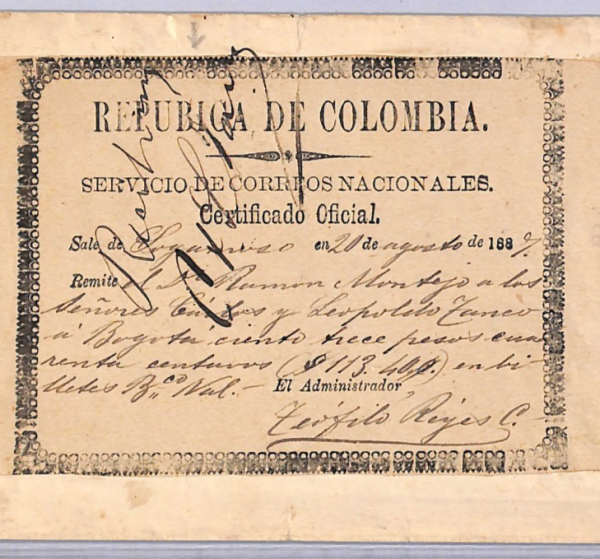 REPUBICA DE COLOMBIA.
SERVICIO DE CORREOS NACIONALES.
Certificado Oficial.
Sale de Sogamoso en 20 de agosto de 1887.
Remite el Dr. Ramon Montejo a los
señores Cárlos y Leopoldo Tanco
á Bogota ciento trece pesos cua
renta centavos ($113.40 c.) en bi
lletes B.co Nal.— El Administrador,
Teófilo Reyes C.